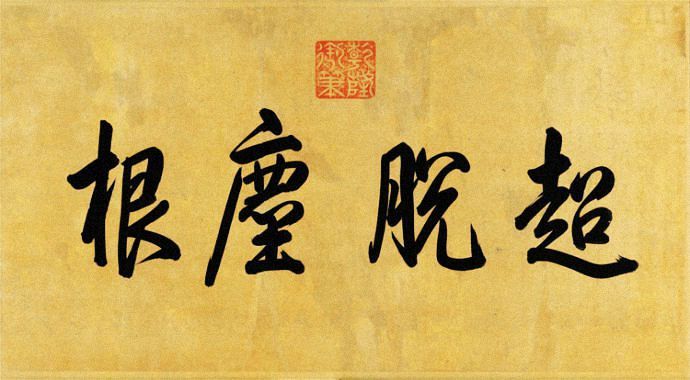 乾隆御筆
超脫塵根